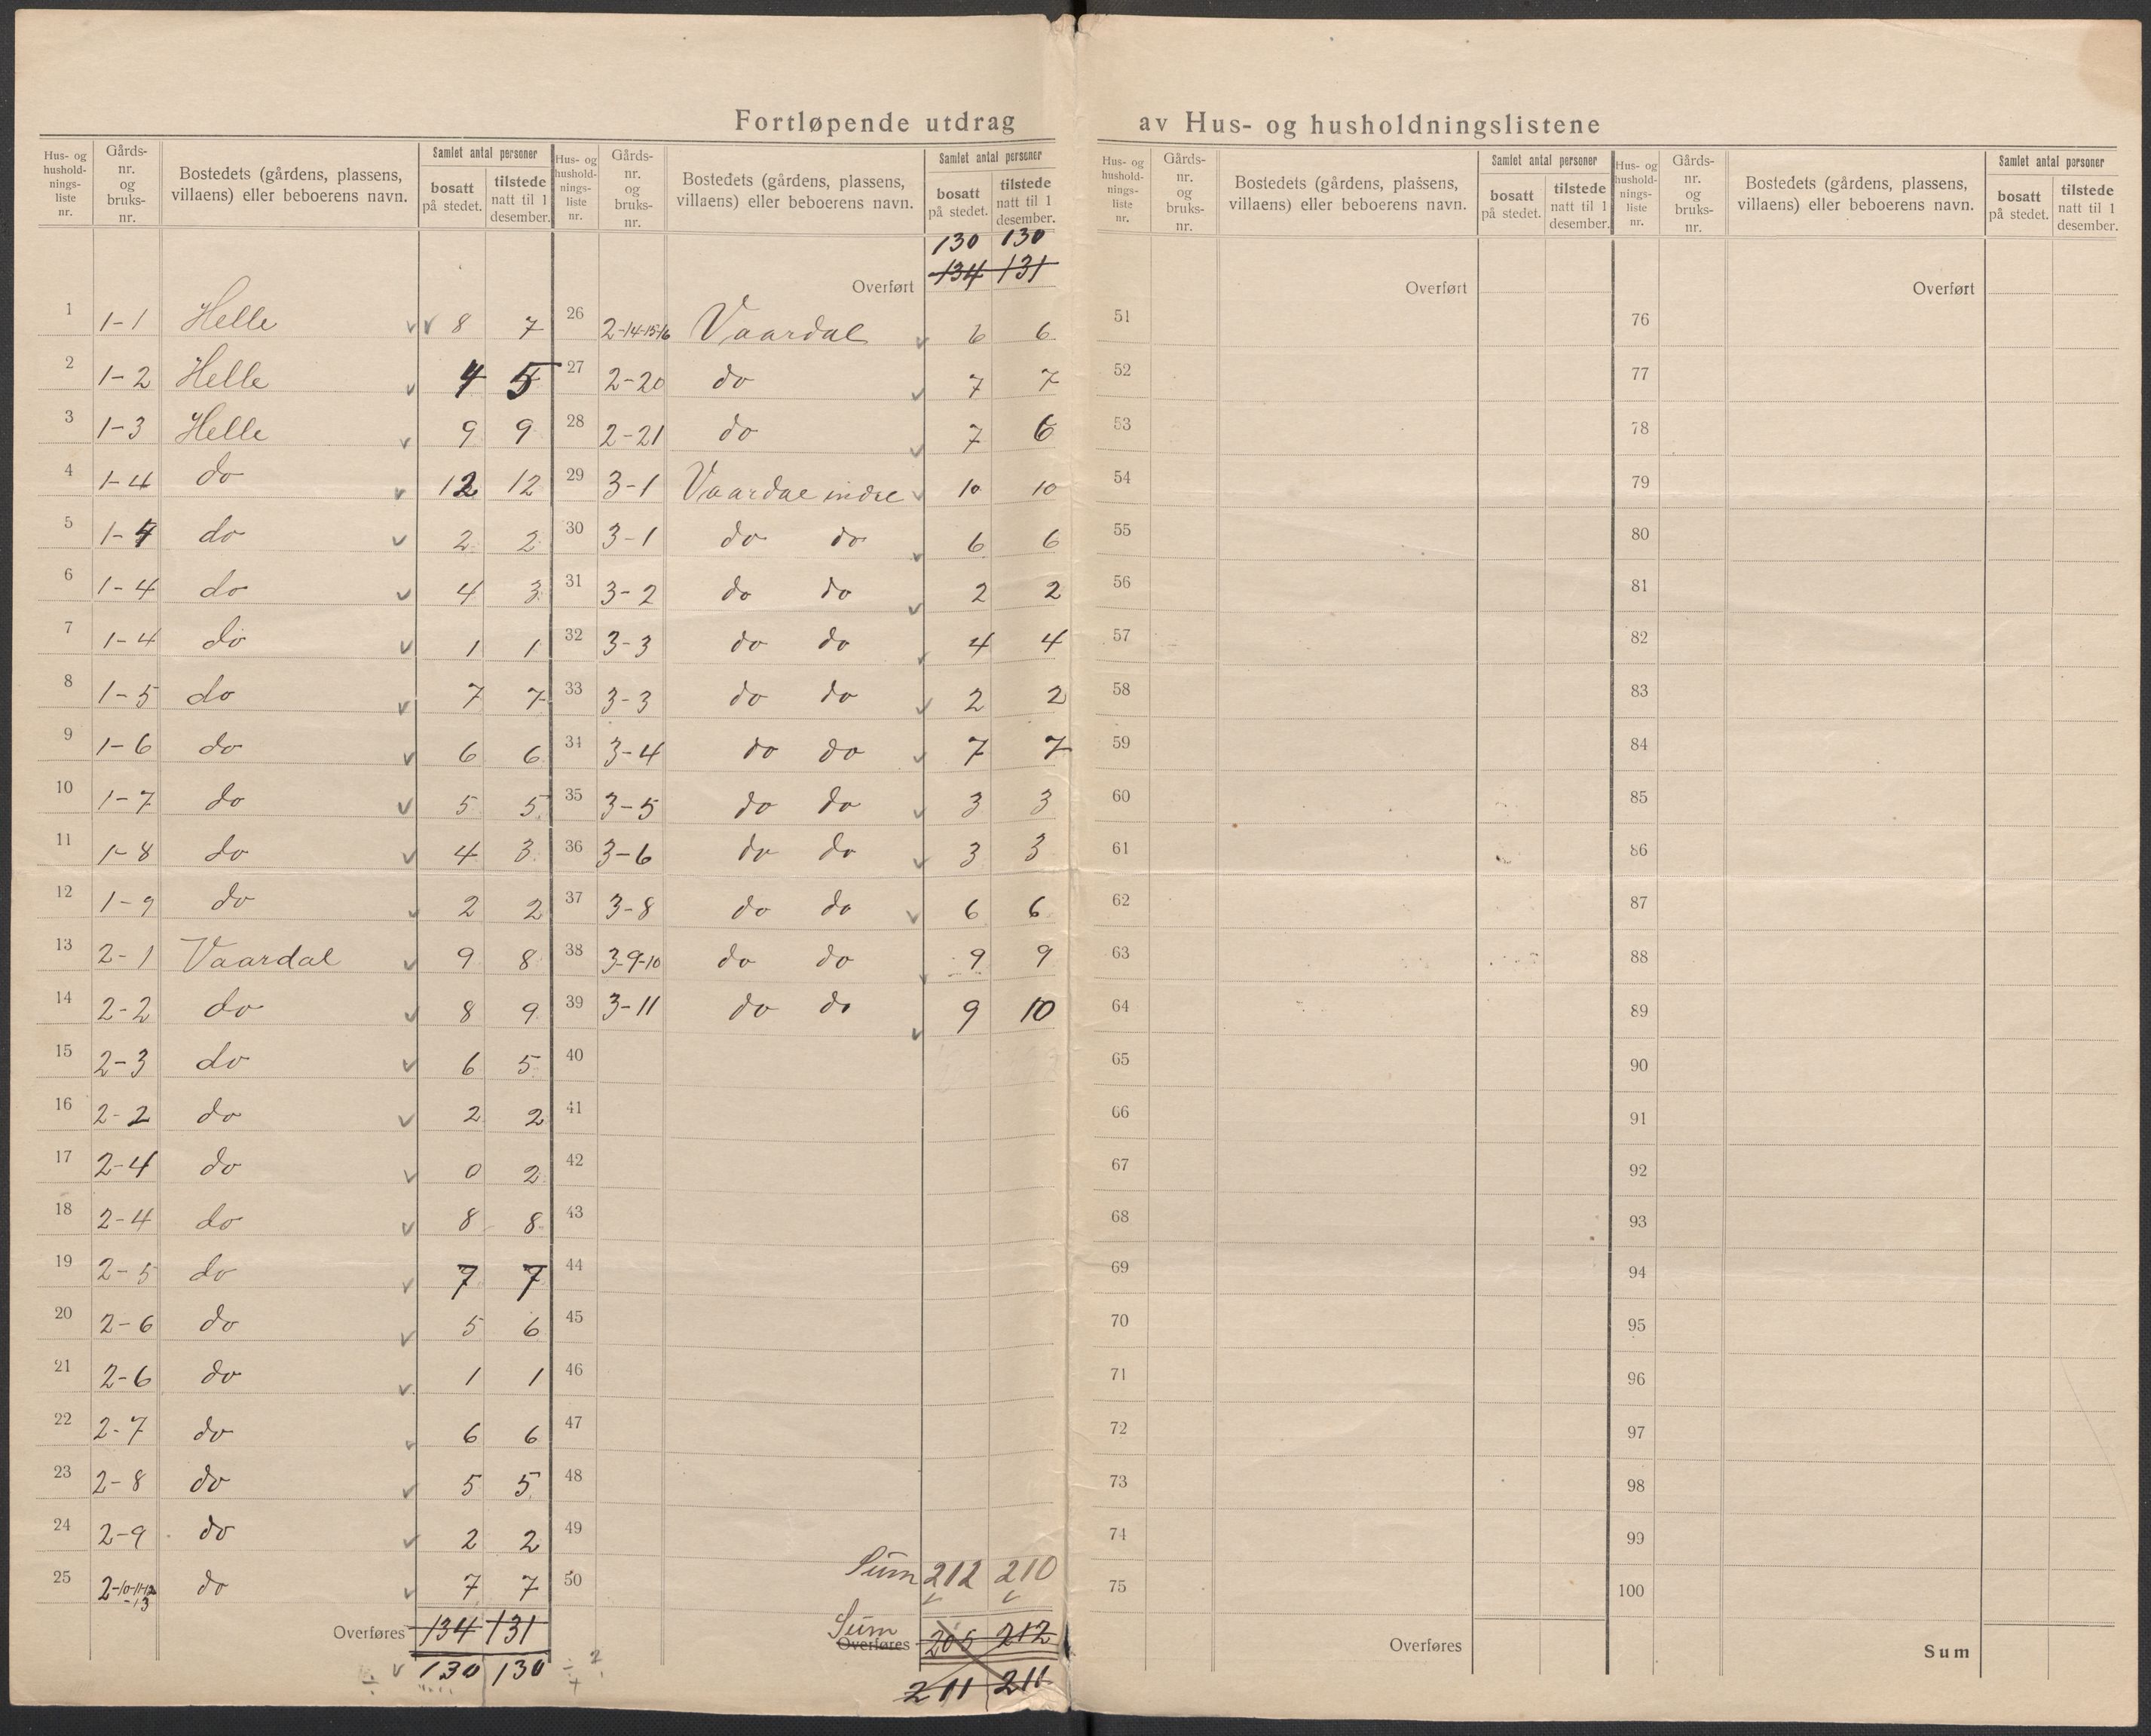 Fortløpende utdrag av Hus- og husholdningslistene
Hus- og hushold-nings-liste nr. | Gårds-nr. og bruks-nr. | Bostedets (gårdens, plassens, villaens) eller beboerens navn. | Samlet antal personer | bosatt på stedet. | tilstede natt til 1 desember.
1 1-1 Helle 8 7
2 1-2 Helle 4 5
3 1-3 Helle 9 9
4 1-4 do 12 12
5 1-4 do 2 2
6 1-4 do 4 3
7 1-4 do 1 1
8 1-5 do 7 7
9 1-6 do 6 6
10 1-7 do 5 5
11 1-8 do 4 3
12 1-9 do 2 2
13 2-1 Vaardal 9 8
14 2-2 do 8 9
15 2-3 do 6 5
16 2-2 do 2 2
17 2-4 do 0 2
18 2-4 do 8 8
19 2-5 do 7 7
20 2-6 do 5 6
21 2-6 do 1 1
22 2-7 do 6 6
23 2-8 do 5 5
24 2-9 do 2 2
25 2-10-11-12-13 do 7 7
Overføres 134 131
130 130
Hus- og hushold-nings-liste nr. | Gårds-nr. og bruks-nr. | Bostedets (gårdens, plassens, villaens) eller beboerens navn. | Samlet antal personer | bosatt på stedet. | tilstede natt til 1 desember.
130 130
Overført 134 131
26 2-14-15-16 Vaardal 6 6
27 2-20 do 7 7
28 2-21 do 7 6
29 3-1 Vaardal indre 10 10
30 3-1 do do 6 6
31 3-2 do do 2 2
32 3-3 do do 4 4
33 3-3 do do 2 2
34 3-4 do do 7 7
35 3-5 do do 3 3
36 3-6 do do 3 3
37 3-8 do do 6 6
38 3-9-10 do do 9 9
39 3-11 do do 9 10
40
41
42
43
44
45
46
47
48
49
50
Sum 212 210
Sum Overføres 205 212
211 211
Hus- og hushold-nings-liste nr. | Gårds-nr. og bruks-nr. | Bostedets (gårdens, plassens, villaens) eller beboerens navn. | Samlet antal personer | bosatt på stedet. | tilstede natt til 1 desember.
Overført
51
52
53
54
55
56
57
58
59
60
61
62
63
64
65
66
67
68
69
70
71
72
73
74
75
Overføres
Hus- og hushold-nings-liste nr. | Gårds-nr. og bruks-nr. | Bostedets (gårdens, plassens, villaens) eller beboerens navn. | Samlet antal personer | bosatt på stedet. | tilstede natt til 1 desember.
Overført
76
77
78
79
80
81
82
83
84
85
86
87
88
89
90
91
92
93
94
95
96
97
98
99
100
Sum